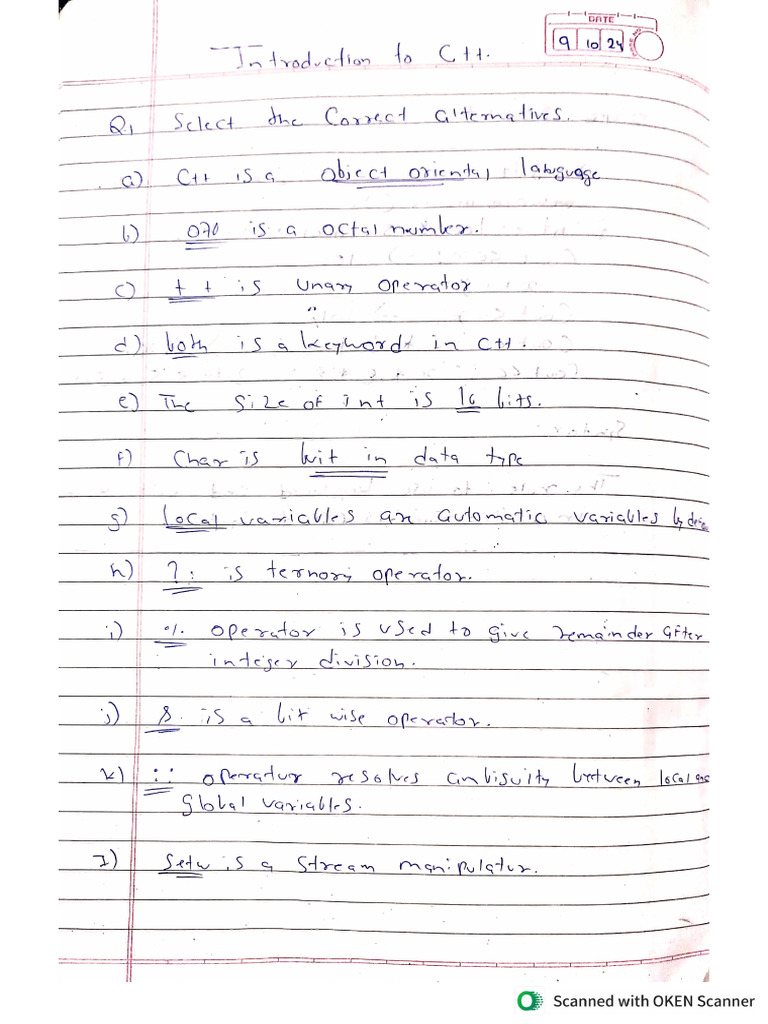 DATE
9 10 24
Introduction to C++.
Q1 Select the Correct alternatives.
a) C++ is a object oriental language
b) 070 is a octal number.
c) ++ is unary operator
d) both is a keyword in C++.
e) The size of int is 16 bits.
f) Char is buit in data type
g) local variables are automatic variables by
h) ?: is ternory operator.
i) % operator is used to give remainder after
integer division.
j) & is a bit wise operator.
k) :: operatur resolves ambisuity between local and
global variables.
I) Setw is a stream manipulatur.
Scanned with OKEN Scanner